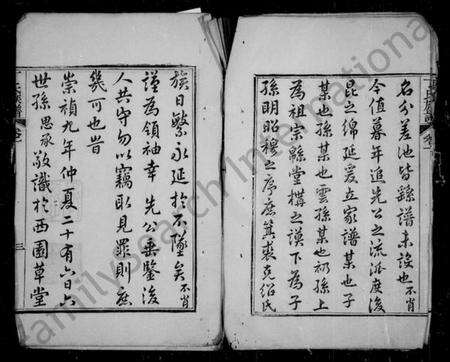 名分差池皆繇譜未設也不肖
今值暮年追先公之流派度後
昆之綿延爰立家譜某也子
某也孫某也雲孫某也礽孫上
為祖宗緜堂構之謨下為子
孫明昭穆之序庶箕裘克紹氏
族日繁永延於不墜矣不肖
謹為領袖幸先公垂鑒後
人共守勿以竊取見罪則庶
幾可也旹
崇禎九年仲夏二十有六日六
世孫思承敬識於西園草堂
三
FamilySearch International